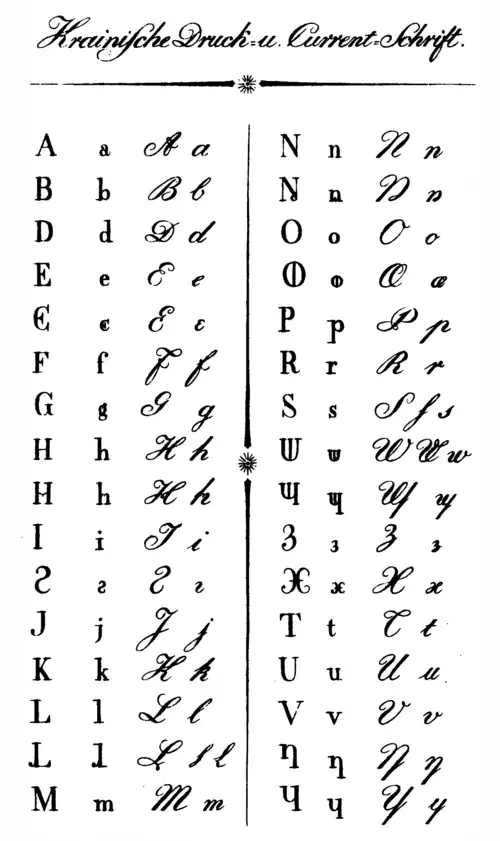 Krainiſche Druck= u. Current=Schrift.
A a A a
B b B b
D d D d
E e E e
Є є Є є
F f F f
G g G g
H h H h
H h H h
I i I i
Ƨ ƨ Ƨ ƨ
J j J j
K k K k
L l L l
L l L ſ l
M m M m
N n N n
N n N n
O o O o
Ⲫ ⲫ Œ œ
P p P p
R r R r
S s S ſ s
Ш ш W W w
Ɥ ɥ Щ щ
З з З з
Ж ж Ж ж
T t T t
U u U u
V v V v
Ƞ ŋ Ƞ ŋ
Ч ч Ч ч